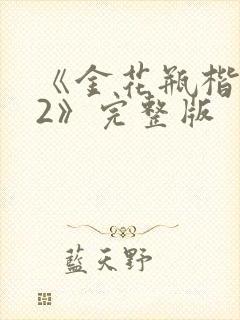 《金花瓶楷
2》完整版
藍天野